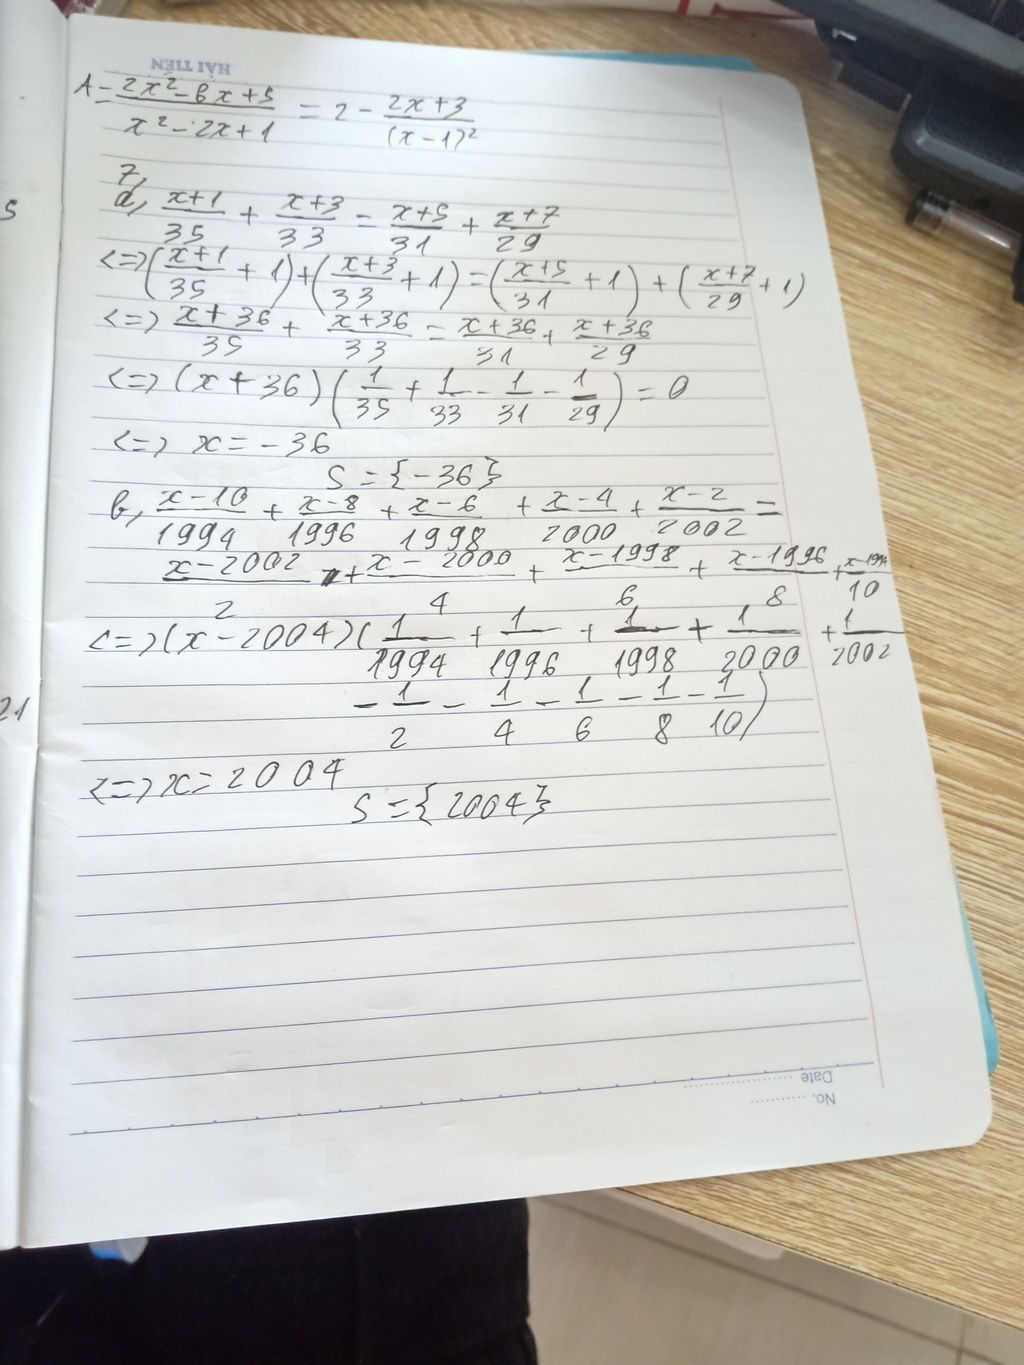 HẢI TIẾN
A = \frac{2x^2-6x+5}{x^2-2x+1} = 2 - \frac{2x+3}{(x-1)^2}
7,
a, \frac{x+1}{35} + \frac{x+3}{33} = \frac{x+5}{31} + \frac{x+7}{29}
<=> (\frac{x+1}{35} + 1) + (\frac{x+3}{33} + 1) = (\frac{x+5}{31} + 1) + (\frac{x+7}{29} + 1)
<=> \frac{x+36}{35} + \frac{x+36}{33} = \frac{x+36}{31} + \frac{x+36}{29}
<=> (x+36) (\frac{1}{35} + \frac{1}{33} - \frac{1}{31} - \frac{1}{29}) = 0
<=> x = -36
S = {-36}
b, \frac{x-10}{1994} + \frac{x-8}{1996} + \frac{x-6}{1998} + \frac{x-4}{2000} + \frac{x-2}{2002} =
\frac{x-2002}{2} + \frac{x-2000}{4} + \frac{x-1998}{6} + \frac{x-1996}{8} + \frac{x-1994}{10}
<=> (x-2004) (\frac{1}{1994} + \frac{1}{1996} + \frac{1}{1998} + \frac{1}{2000} + \frac{1}{2002}
- \frac{1}{2} - \frac{1}{4} - \frac{1}{6} - \frac{1}{8} - \frac{1}{10})
<=> x = 2004
S = {2004}
5
21
Date
No.